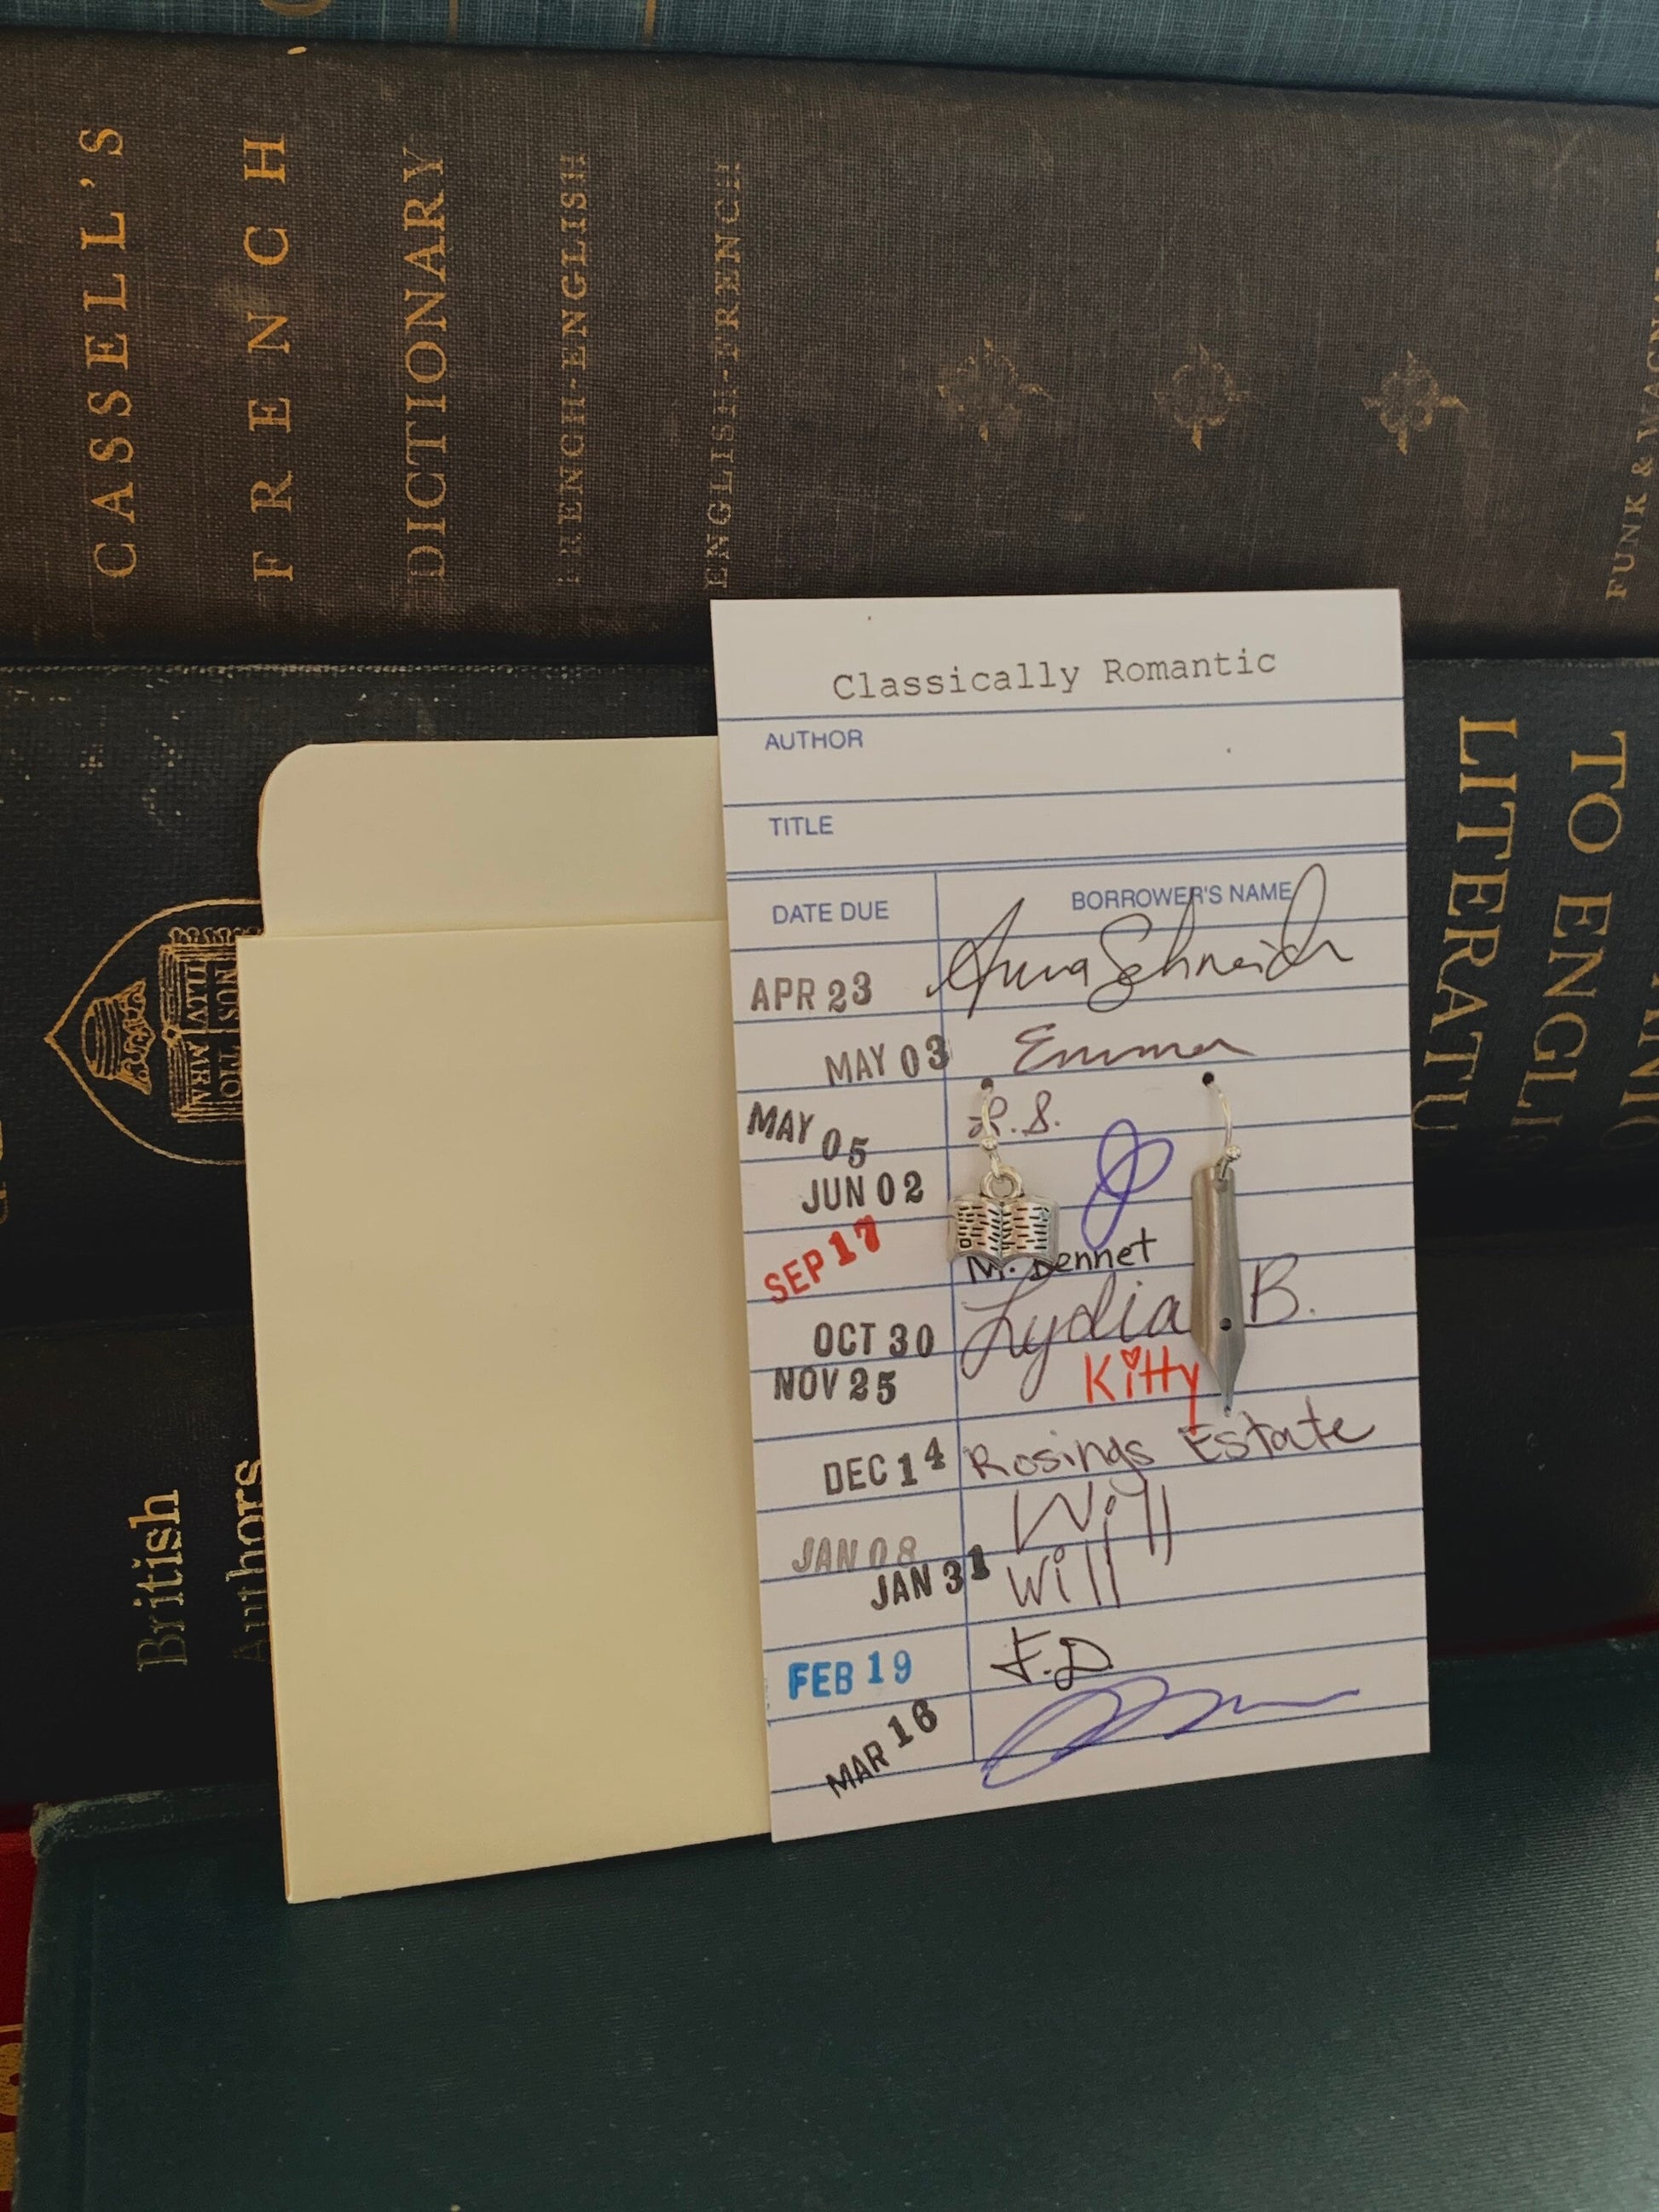 CASSELL'S
FRENCH
DICTIONARY
FRENCH-ENGLISH
ENGLISH-FRENCH
FUNK & WAGNALL
TO ENGLI
LITERATU
British
Authors
Classically Romantic
AUTHOR
TITLE
DATE DUE BORROWER'S NAME
APR 23 Anna Schneid
MAY 03 Emma
MAY 05 L.S.
JUN 02
SEP 17 M. Bennet
OCT 30 Lydia B.
NOV 25 Kitty
DEC 14 Rosings Estate
JAN 08 Will
JAN 31 Will
FEB 19 F.D.
MAR 16